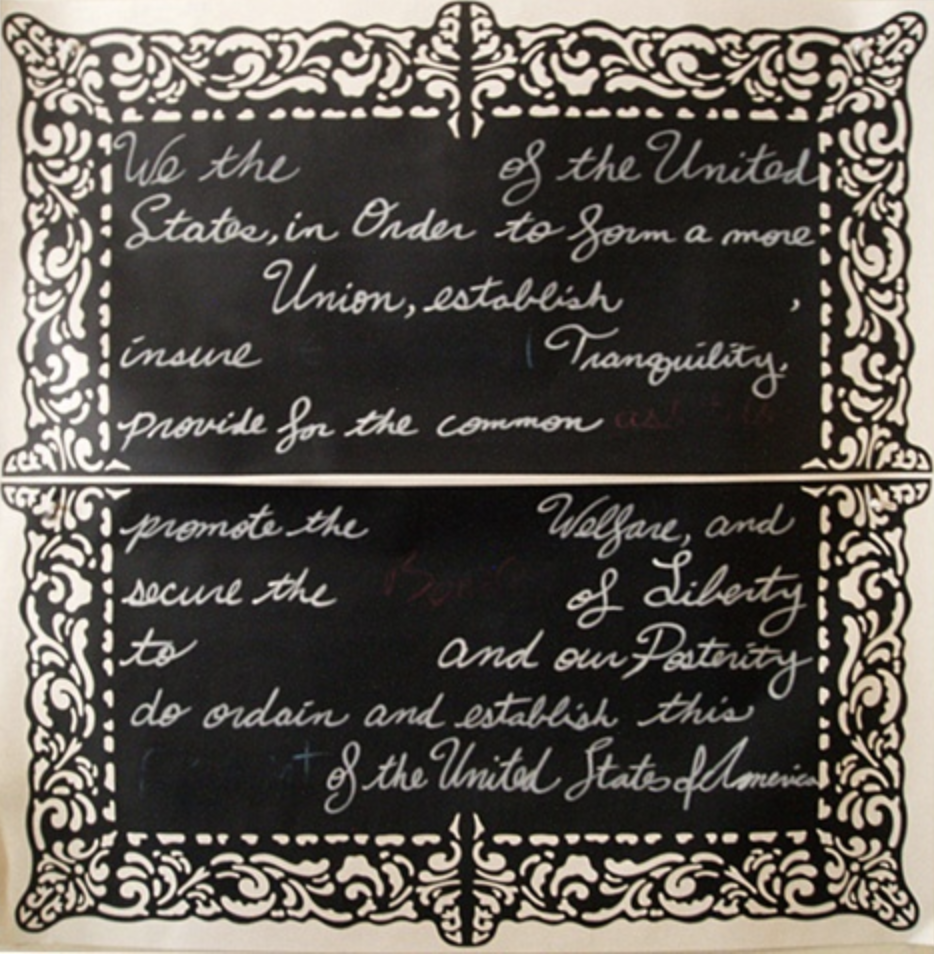 We the of the United
States, in Order to form a more
Union, establish ,
insure Tranquility,
provide for the common
promote the Welfare, and
secure the of Liberty
to and our Posterity
do ordain and establish this
of the United States of America